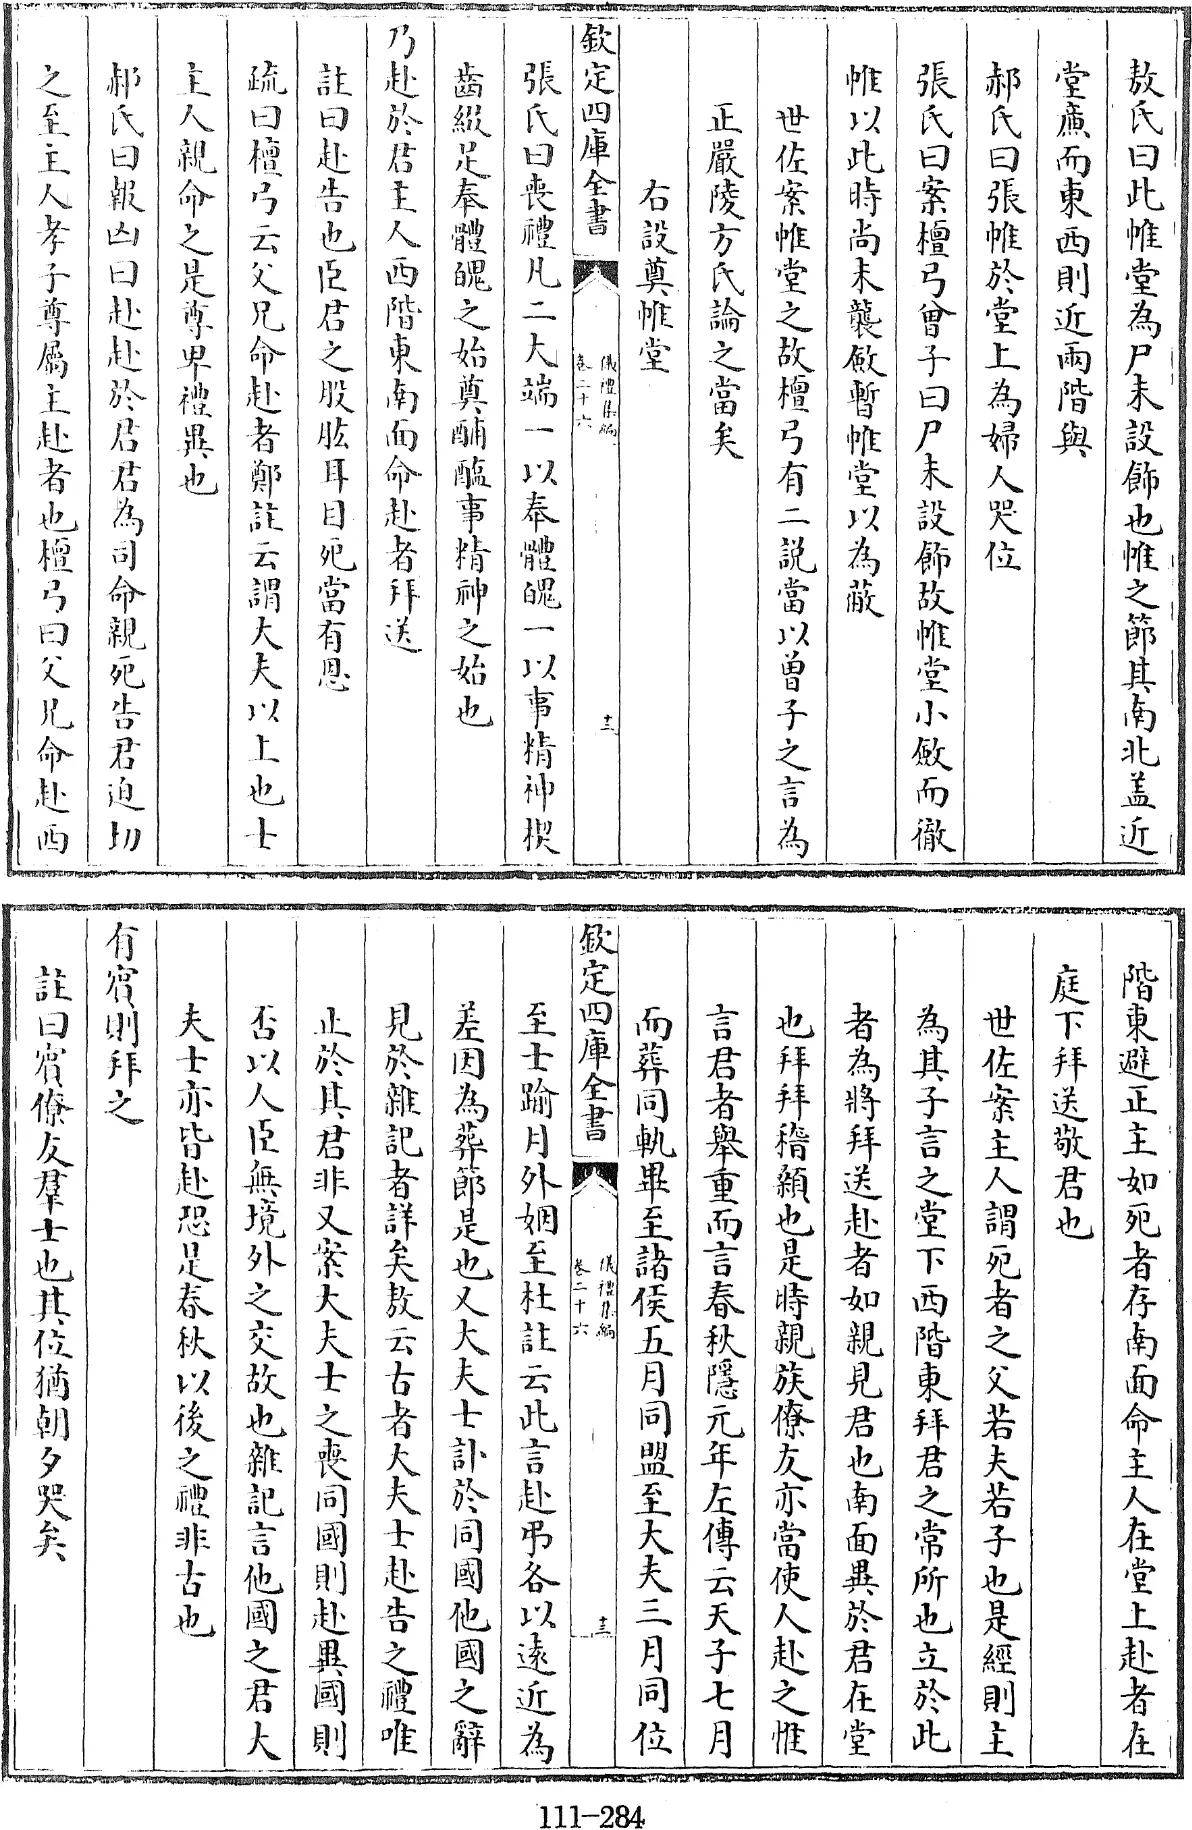 敖氏曰此帷堂為尸未設飾也帷之節其南北蓋近
堂廉而東西則近兩階與
郝氏曰張帷於堂上為婦人哭位
張氏曰案檀弓曾子曰尸未設飾故帷堂小斂而徹
帷以此時尚未襲斂暫帷堂以為蔽
世佐案帷堂之故檀弓有二説當以曾子之言為
正嚴陵方氏論之當矣
右設奠帷堂
欽定四庫全書
儀禮集編
卷二十六
十三
張氏曰喪禮凡二大端一以奉體魄一以事精神楔
齒綴足奉體魄之始奠酺醢事精神之始也
乃赴於君主人西階東南面命赴者拜送
註曰赴告也臣君之股肱耳目死當有恩
疏曰檀弓云父兄命赴者鄭註云謂大夫以上也士
主人親命之是尊卑禮異也
郝氏曰報凶曰赴赴於君君為司命親死告君迫切
之至主人孝子尊屬主赴者也檀弓曰父兄命赴西
階東避正主如死者存南面命主人在堂上赴者在
庭下拜送敬君也
世佐案主人謂死者之父若夫若子也是經則主
為其子言之堂下西階東拜君之常所也立於此
者為將拜送赴者如親見君也南面異於君在堂
也拜拜稽顙也是時親族僚友亦當使人赴之惟
言君者舉重而言春秋隱元年左傳云天子七月
而葬同軌畢至諸侯五月同盟至大夫三月同位
欽定四庫全書
儀禮集編
卷二十六
十三
至士踰月外姻至杜註云此言赴弔各以遠近為
差因為葬節是也又大夫士訃於同國他國之辭
見於雜記者詳矣敖云古者大夫士赴告之禮唯
止於其君非又案大夫士之喪同國則赴異國則
否以人臣無境外之交故也雜記言他國之君大
夫士亦皆赴恐是春秋以後之禮非古也
有賓則拜之
註曰賓僚友羣士也其位猶朝夕哭矣
111-284